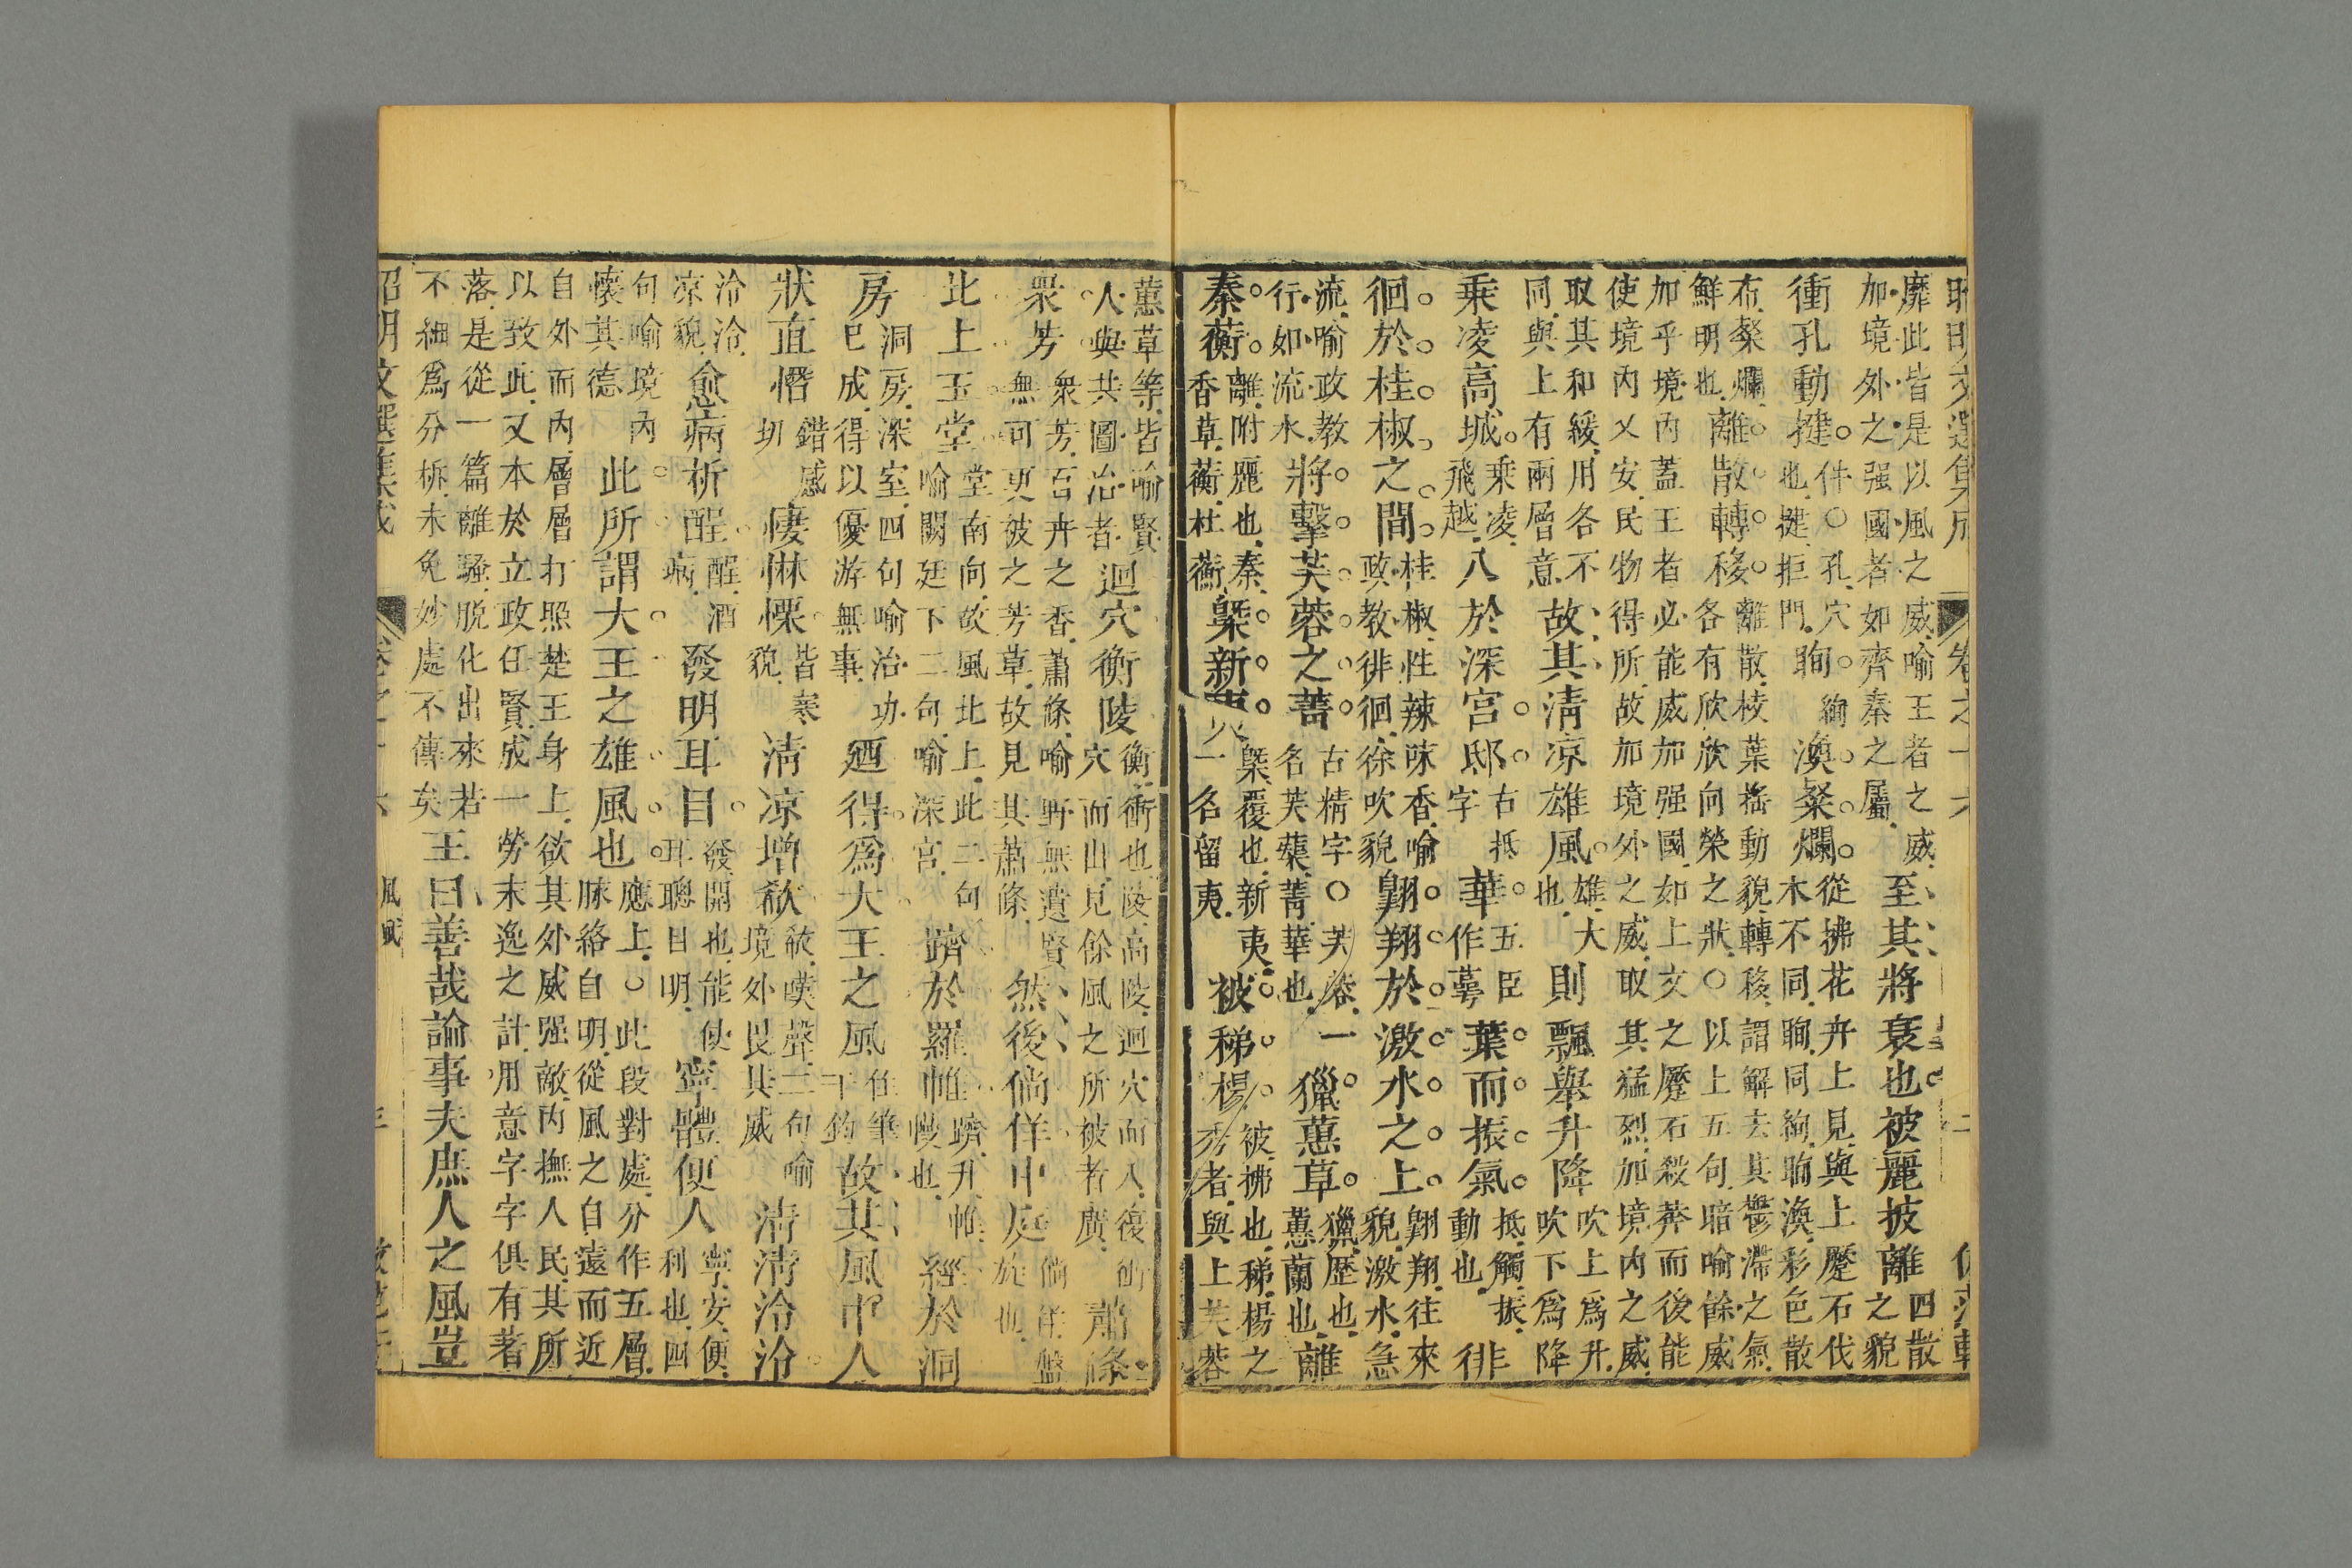 靡此皆是以風之威喻王者之威至其將衰也被麗披離四散
加境外之强國者如齊秦之屬之貌
衝孔動揵件○孔穴也揵拒門眴絢渙粲爛從拂花卉上見與上蹷石伐木不同眴同絢眴渙彩色散
布粲爛鮮明也離散轉移離散枝葉搖動貌轉移謂解去其鬱滯之氣各有欣欣向榮之狀○以上五句暗喻餘威
加乎境內蓋王者必能威加强國如上文之蹷石殺莾而後能
使境內乂安民物得所故加境外之威取其猛烈加境內之威
取其和緩用各不同與上有兩層意故其清凉雄風雄大也則飄舉升降吹上爲升吹下爲降
乘凌高城乘凌飛越入於深宮邸古抵字華五臣作蕚葉而振氣抵觸振動也徘
徊於桂椒之間桂椒性辣味香喻政教徘徊徐吹貌翺翔於激水之上翺翔往來貌激水急
流喻政教行如流水將擊芙蓉之菁古精字○芙蓉一名芙蕖菁華也獵蕙草獵歷也蕙蘭也離
秦蘅離附麗也秦香草蘅杜蘅槩新夷槩覆也新夷一名留夷被稊楊被拂也稊楊之秀者與上芙蓉
蕙草等皆喻賢人與共圖治者迴穴衝陵衝衝也陵高陵迴穴而入復衝穴而山見餘風之所被者廣蕭條
衆芳衆芳百卉之香蕭條喻野無遺賢無可更被之芳草故見其蕭條然後倘佯中庭倘佯盤旋也
北上玉堂堂南向故風北上此二句喻闕廷下二句喻深宮躋於羅帷躋升帷幔也經於洞
房洞房深室四句喻治功已成得以優游無事廼得爲大王之風住筆千鈞故其風中人
狀直憯錯感切悽惏慄皆寒貌清凉增欷欷嘆聲二句喻境外畏其威清清泠泠
泠泠凉貌愈病析酲酲酒病發明耳目發開也能使耳聰目明寧體便人寧安便利也四
句喻境內懷其德此所謂大王之雄風也應上○此段對處分作五層脉絡自明從風之自遠而近
自外而內層層打照楚王身上欲其外威强敵內撫人民其所
以致此又本於立政任賢成一勞末逸之計用意字字俱有著
落是從一篇離騷脱化出來若不細爲分柝未免妙處不傳矣王曰善哉論事夫庶人之風豈
風賦